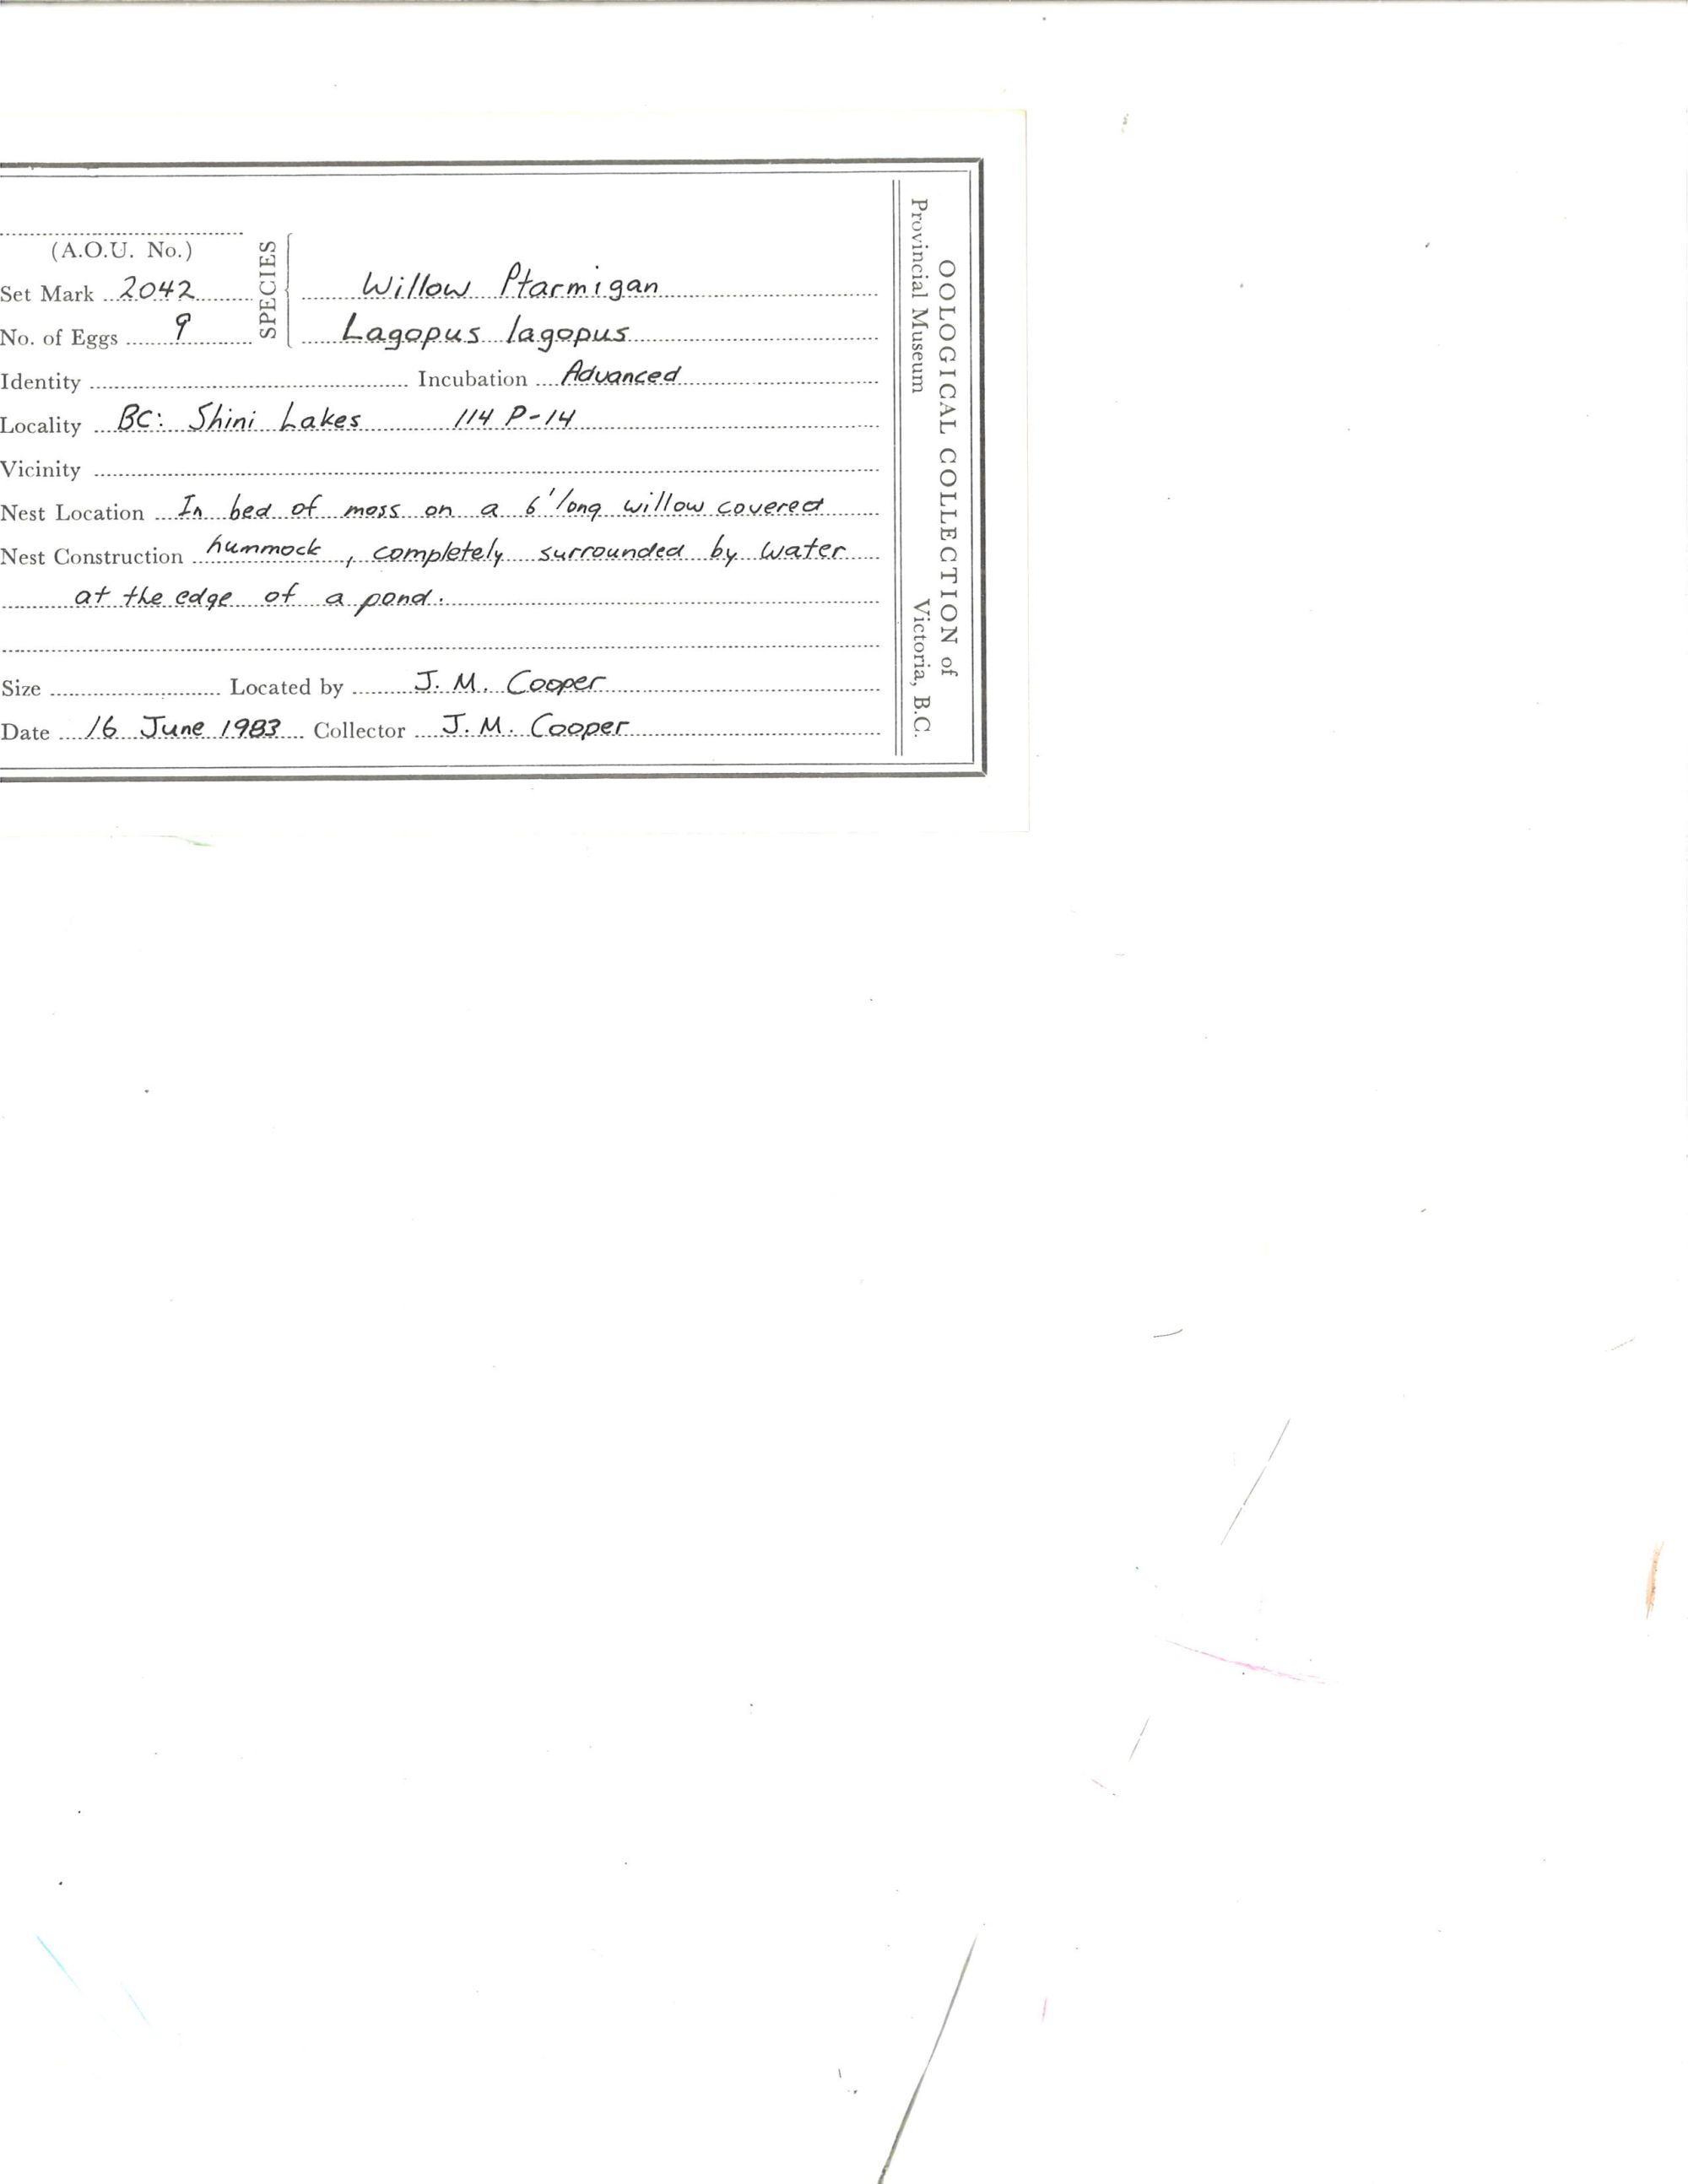 (A.O.U. No.)
SPECIES
Set Mark 2042 Willow Ptarmigan
No. of Eggs 9 Lagopus lagopus
Identity Incubation Advanced
Locality BC: Shini Lakes 114 P-14
Vicinity
Nest Location In bed of moss on a 6' long willow covered
Nest Construction hummock, completely surrounded by water
at the edge of a pond.
Size Located by J. M. Cooper
Date 16 June 1983 Collector J. M. Cooper
OOLOGICAL COLLECTION of
Provincial Museum Victoria, B.C.